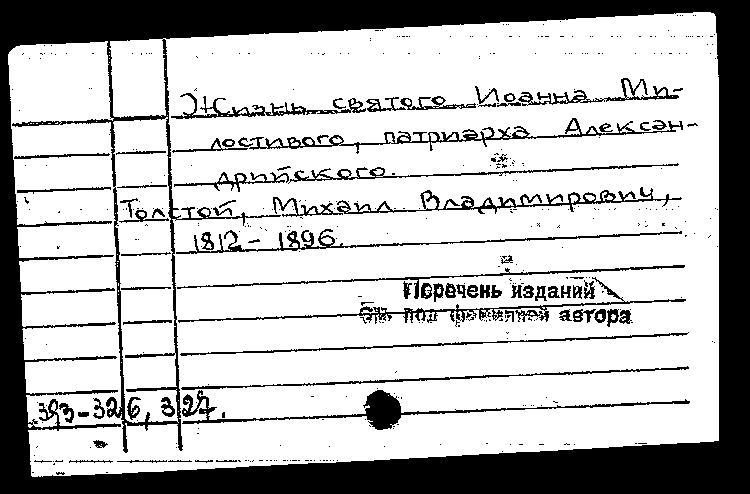 Жизнь святого Иоанна Ми-
лостивого, патриарха Алексан-
дрийского.
Толстой, Михаил Владимирович,
1812 - 1896.
Перечень изданий
См. под фамилией автора
393-326, 327.